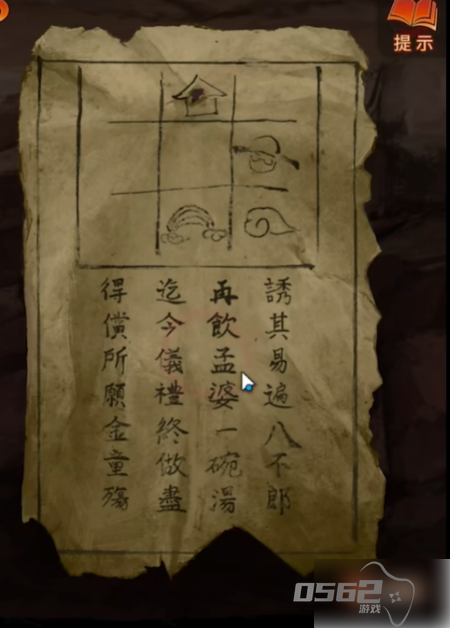 提示
誘其易遍八不郎
再飲孟婆一碗湯
迄今儀禮終做盡
得償所願金童殤
0562
游戏